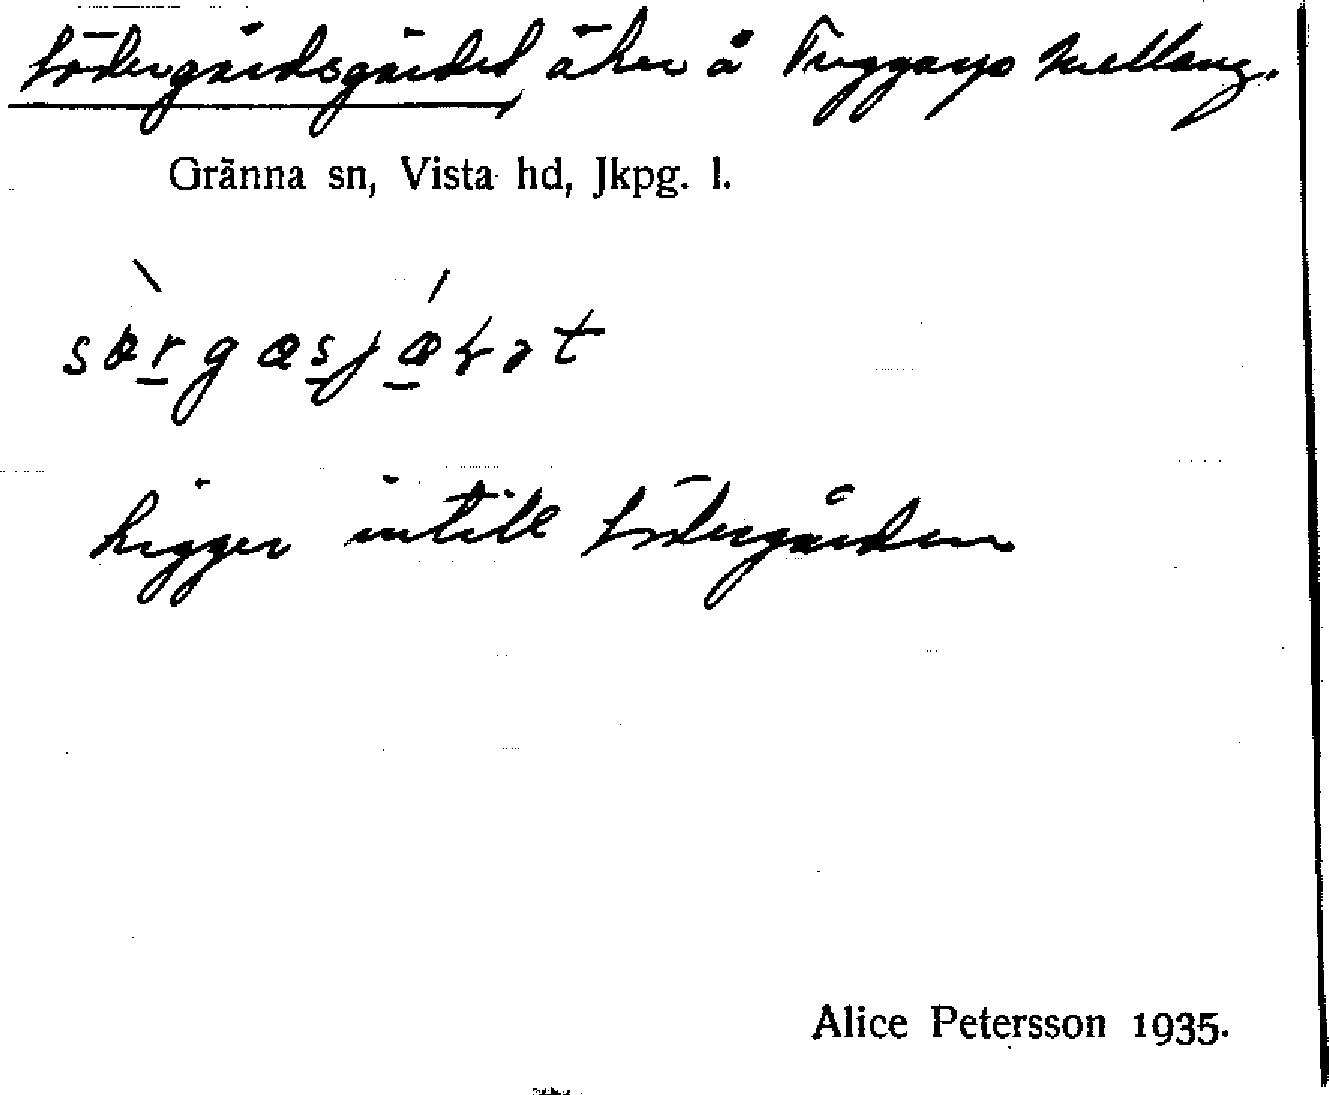 Södergårdsgärdet åker å Tuggarps Mellang.
Gränna sn, Vista hd, Jkpg. l.
Ligger intill Södergården
Alice Petersson 1935.